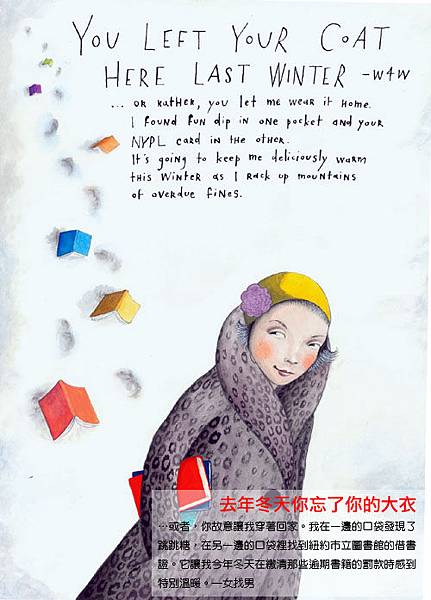 You Left Your Coat
Here Last Winter -w4w
... or rather, you let me wear it home.
I found fun dip in one pocket and your
NYPL card in the other.
It's going to keep me deliciously warm
this winter as I rack up mountains
of overdue fines.
去年冬天你忘了你的大衣
…或者，你故意讓我穿著回家。我在一邊的口袋發現了
跳跳糖，在另一邊的口袋裡找到紐約市立圖書館的借書
證。它讓我今年冬天在繳清那些逾期書籍的罰款時感到
特別溫暖。—女找男